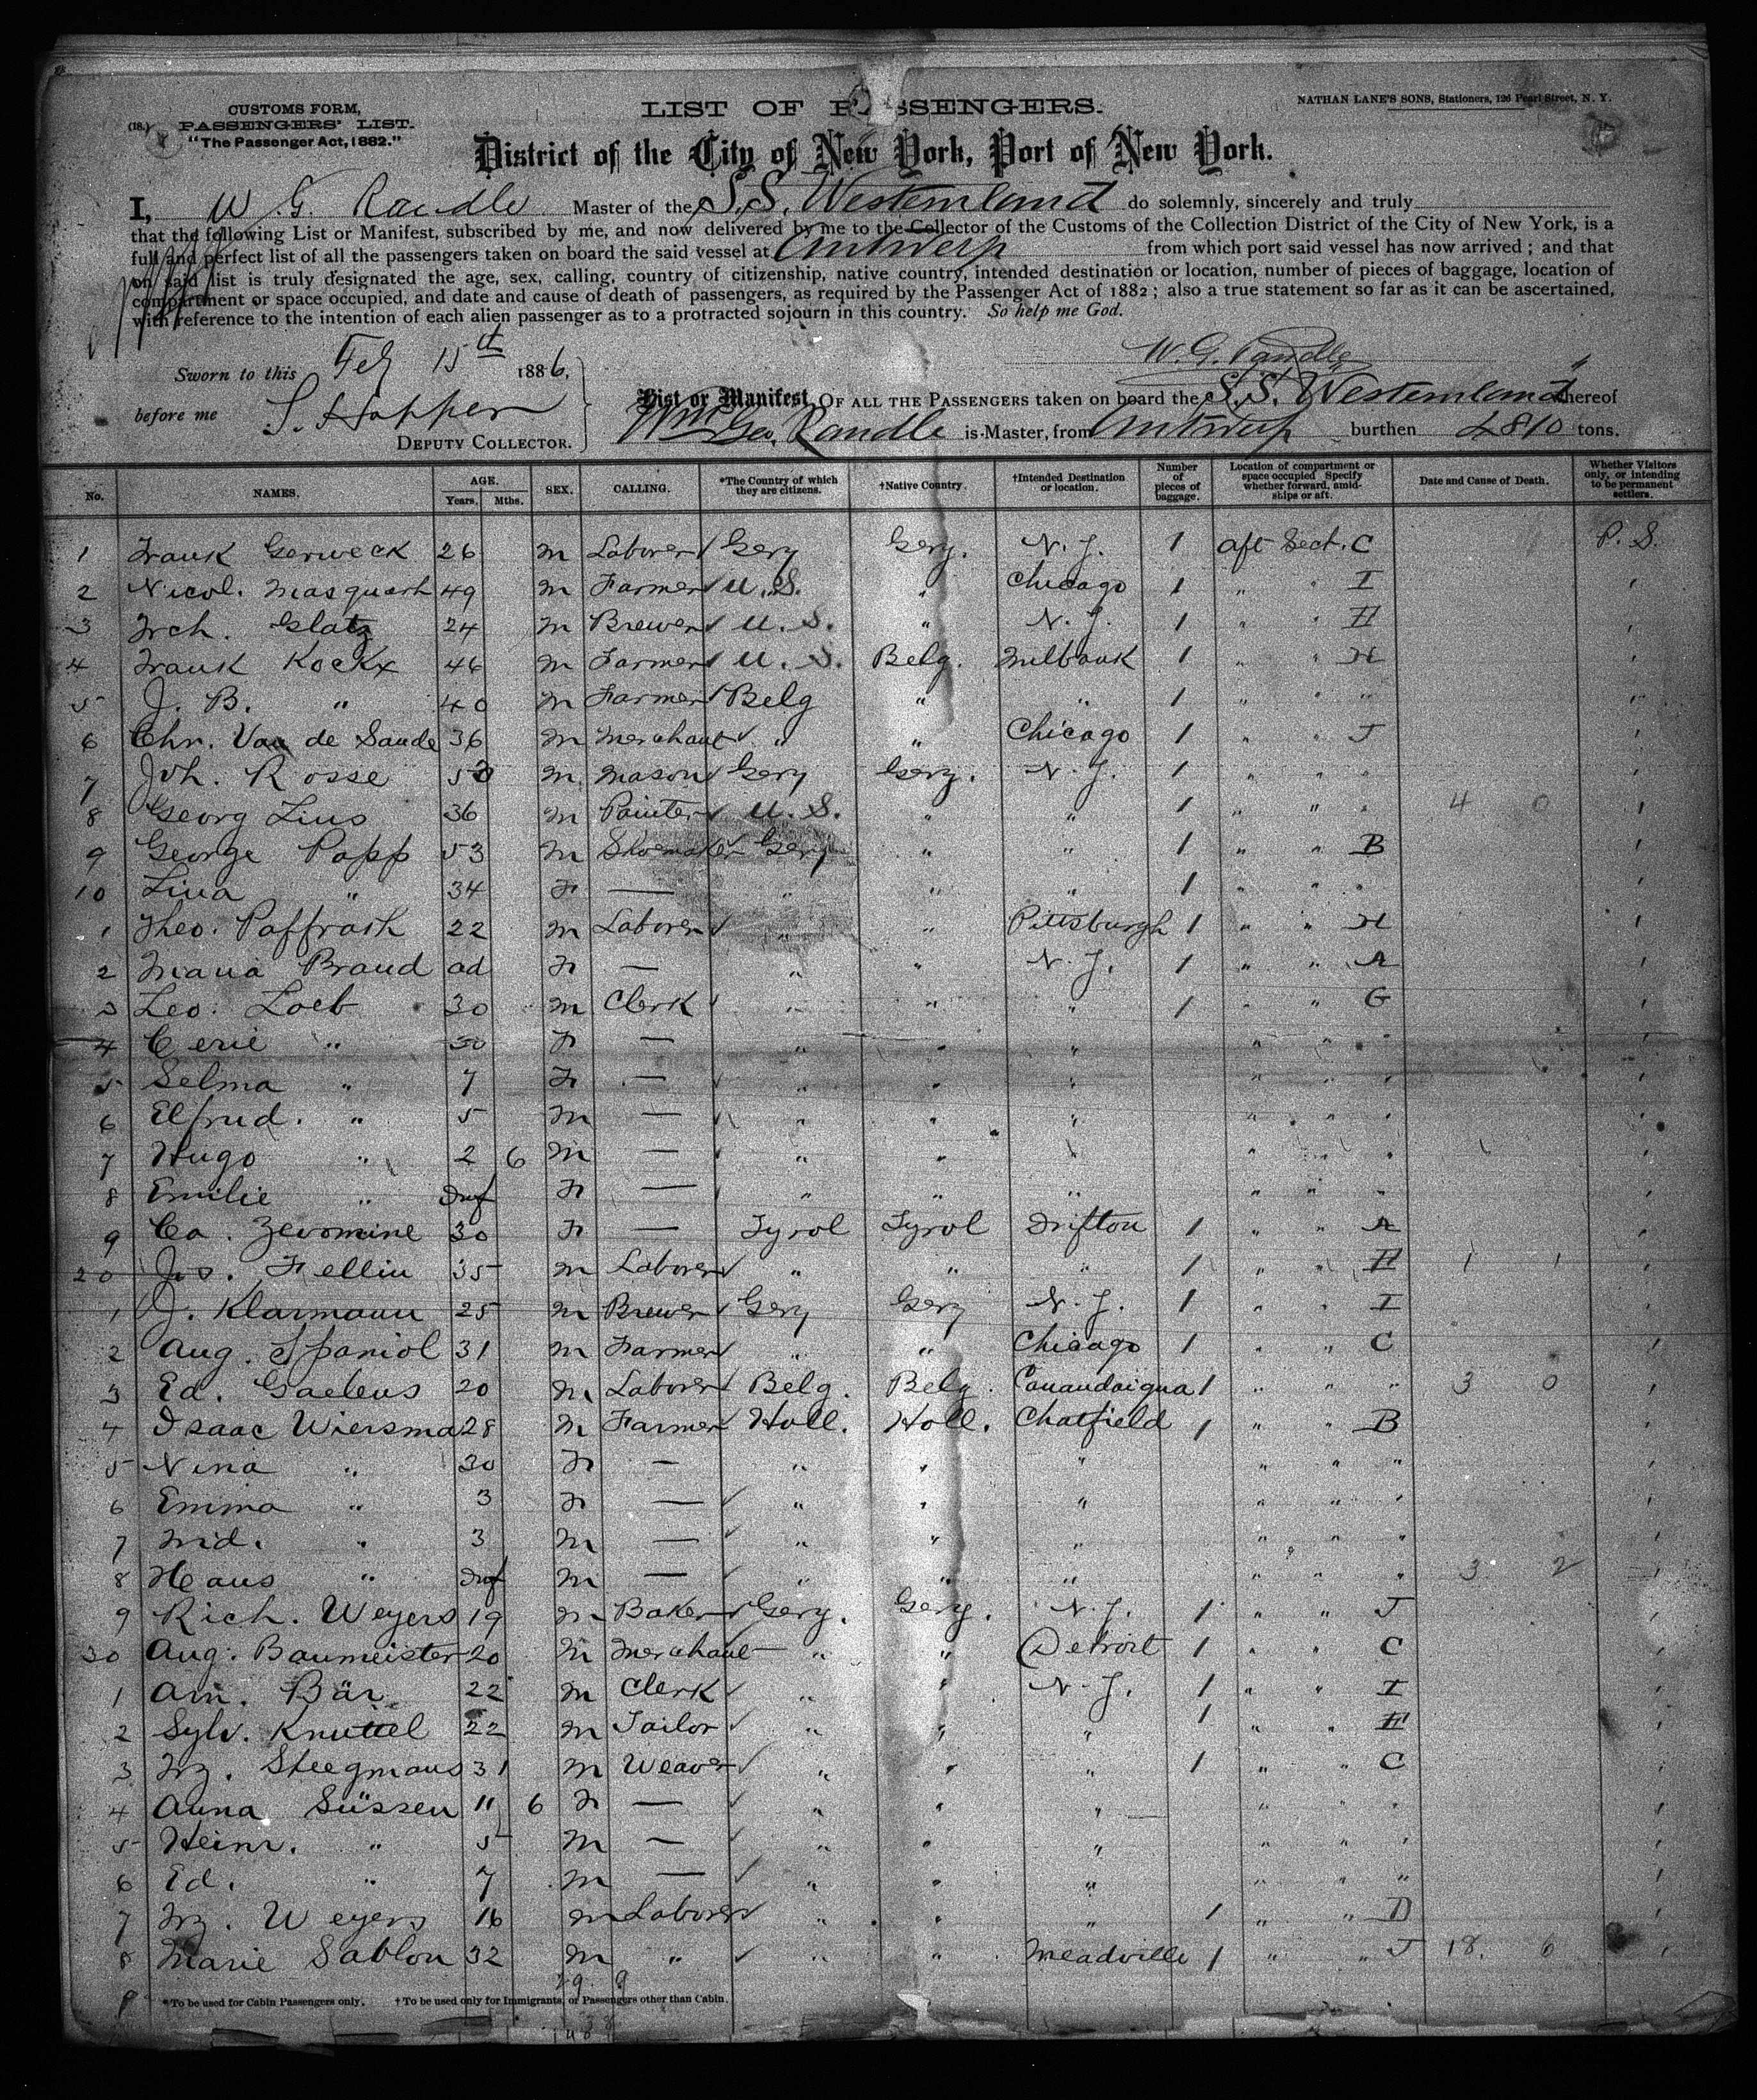 CUSTOMS FORM,
(18.) PASSENGERS' LIST.
"The Passenger Act, 1882."
LIST OF PASSENGERS.
NATHAN LANE'S SONS, Stationers, 126 Pearl Street, N. Y.
District of the City of New York, Port of New York.
I, W. G. Randle Master of the S.S. Westernland do solemnly, sincerely and truly
that the following List or Manifest, subscribed by me, and now delivered by me to the Collector of the Customs of the Collection District of the City of New York, is a
full and perfect list of all the passengers taken on board the said vessel at Antwerp from which port said vessel has now arrived; and that
on said list is truly designated the age, sex, calling, country of citizenship, native country, intended destination or location, number of pieces of baggage, location of
compartment or space occupied, and date and cause of death of passengers, as required by the Passenger Act of 1882; also a true statement so far as it can be ascertained,
with reference to the intention of each alien passenger as to a protracted sojourn in this country. So help me God.
W. G. Randle
Sworn to this Feb 15th 1886,
before me S. Hopper
DEPUTY COLLECTOR.
List or Manifest OF ALL THE PASSENGERS taken on board the S.S. Westernland whereof
Wm Geo. Randle is Master, from Antwerp burthen 4810 tons.
No. NAMES. AGE. Years. Mths. SEX. CALLING. *The Country of which they are citizens. †Native Country. †Intended Destination or location. Number of pieces of baggage. Location of compartment or space occupied Specify whether forward, amid-ships or aft. Date and Cause of Death. Whether Visitors only, or intending to be permanent settlers.
1 Frank Gerweck 26 m Laborer Gery Gery. N. J. 1 aft Sect. C P. S.
2 Nicol. Masquart 49 m Farmer U. S. " Chicago 1 " " I "
3 Frch. Glatz 24 m Brewer U. S. " N. J. 1 " " H "
4 Frank Kockx 46 m Farmer U. S. Belg. Milbank 1 " " H "
5 J. B. " 40 m Farmer Belg " " 1 " " " "
6 Chr. Van de Sande 36 m Merchant " " Chicago 1 " " J "
7 Joh. Rosse 50 m Mason Gery Gery. N. J. 1 " " " "
8 Georg Lius 36 m Painter U. S. " " 1 " " " 4 0 "
9 George Popp 53 m Shoemaker Gery " " 1 " " B "
10 Lina " 34 F — " " " 1 " " " "
1 Theo. Paffrath 22 m Laborer " " Pittsburgh 1 " " H "
2 Maria Brand ad F — " " N. J. 1 " " A "
3 Leo. Loeb 30 m Clerk " " " 1 " " G "
4 Cerie " 30 F — " " " " " " "
5 Selma " 7 F — " " " " " " "
6 Elfrud. " 5 m — " " " " " " "
7 Hugo " 2 6 m — " " " " " " "
8 Emilie " Inf F — " " " " " " "
9 Ca. Zeromine 30 F — Tyrol Tyrol Drifton 1 " " A "
20 Jos. Fellin 35 m Laborer " " " 1 " " H 1 1 "
1 J. Klarmann 25 m Brewer Gery Gery N. J. 1 " " I "
2 Aug. Spaniol 31 m Farmer " " Chicago 1 " " C "
3 Ed. Gaelens 20 m Laborer Belg. Belg. Canandaigua 1 " " " 3 0 "
4 Isaac Wiersma 28 m Farmer Holl. Holl. Chatfield 1 " " B "
5 Nina " 30 F — " " " " " " "
6 Emma " 3 F — " " " " " " "
7 Mid. " 3 m — " " " " " " "
8 Hans " Inf m — " " " " " " 3 2 "
9 Rich. Weyers 19 m Baker Gery. Gery. N. J. 1 " " J "
30 Aug. Baumeister 20 m Merchant " " Detroit 1 " " C "
1 Am. Bär 22 m Clerk " " N. J. 1 " " I "
2 Sylv. Knuttel 22 m Tailor " " " 1 " " H "
3 Frz. Steegmans 31 m Weaver " " " 1 " " C "
4 Anna Süssen 11 6 F — " " " " " " "
5 Heinr. " 5 m — " " " " " " "
6 Ed. " 7 m — " " " " " " "
7 Frz. Weyers 16 m Laborer " " " 1 " " D "
8 Marie Sablon 32 m " " " Meadville 1 " " J 18. 6 "
29 9
*To be used for Cabin Passengers only. †To be used only for Immigrants, or Passengers other than Cabin.